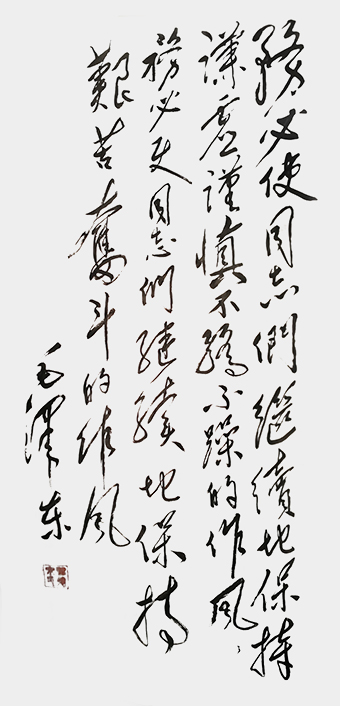 務必使同志們繼續地保持
謙虛謹慎不驕不躁的作風、
務必使同志們继續地保持
艱苦奮斗的作風
毛澤东